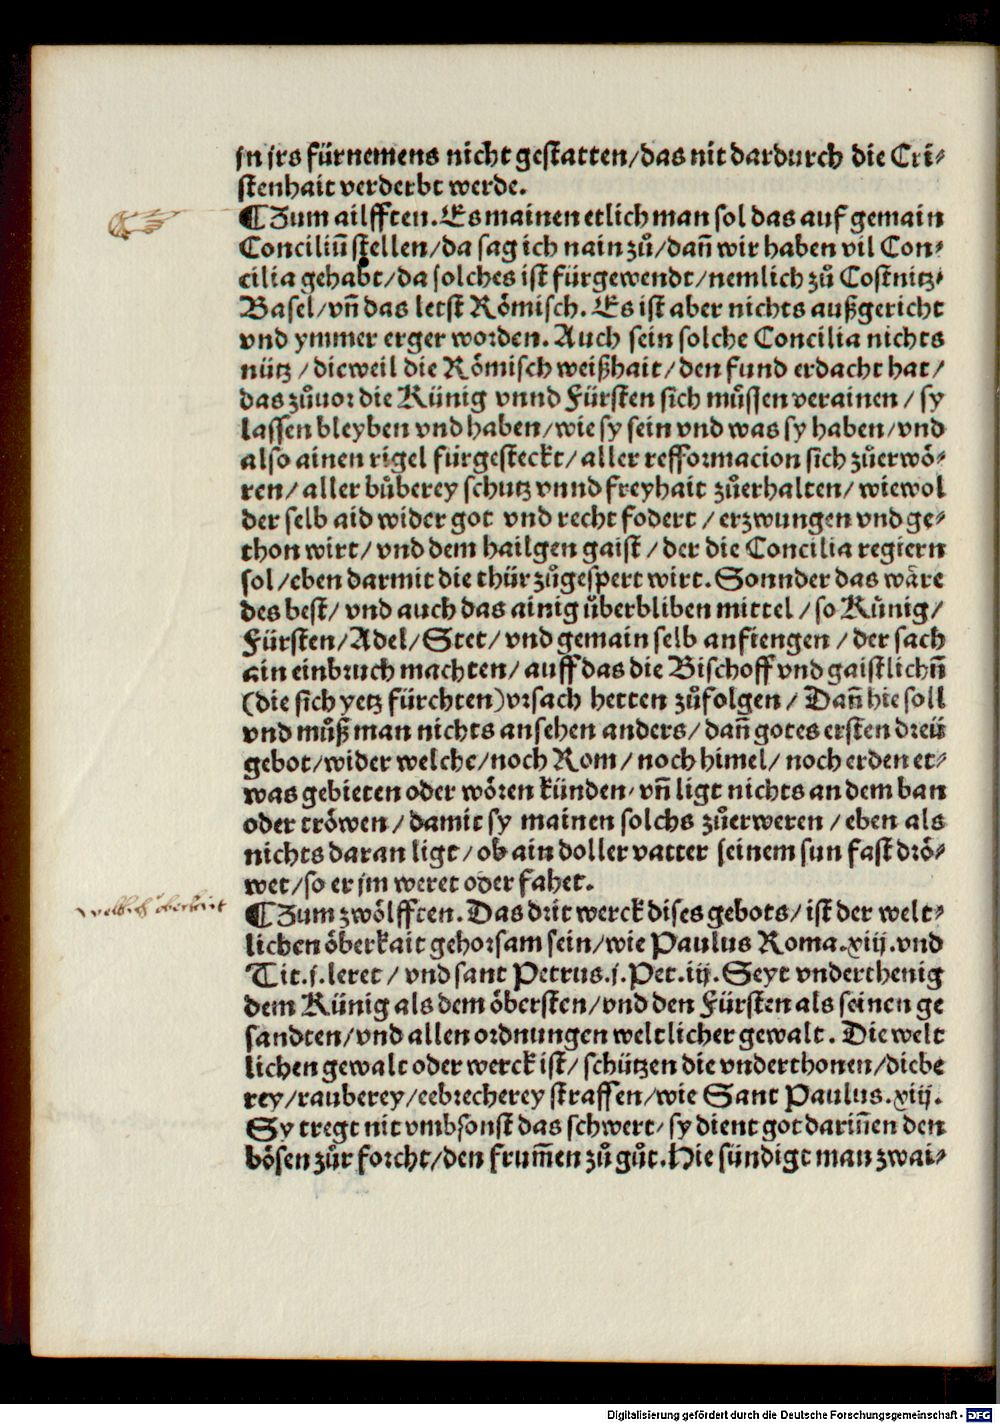 jn jrs fürnemens nicht gestatten/das nit dardurch die Cri⸗
stenhait verderbt werde.
¶Zum ailfften. Es mainen etlich man sol das auf gemain
Conciliū stellen/da sag ich nain zů/dañ wir haben vil Con⸗
cilia gehabt/da solches ist fürgewendt/nemlich zů Costnitz⸗
Basel/vñ das letst Römisch. Es ist aber nichts außgericht
vnd ymmer erger worden. Auch sein solche Concilia nichts
nütz/dieweil die Römisch weißhait/den fund erdacht hat/
das zůuor die Künig vnnd Fürsten sich můssen verainen/sy
lassen bleyben vnd haben/wie sy sein vnd was sy haben/vnd
also ainen rigel fürgesteckt/aller refformacion sich zůerwö⸗
ren/aller bůberey schutz vnnd freyhait zůerhalten/wiewol
der selb aid wider got vnd recht fodert/erzwungen vnd ge⸗
thon wirt/vnd dem hailgen gaist/der die Concilia regiern
sol/eben darmit die thür zůgespert wirt. Sonnder das wäre
des best/vnd auch das ainig überbliben mittel/so Künig/
Fürsten/Adel/Stet/vnd gemain selb anfiengen/der sach
ain einbruch machten/auff das die Bischoff vnd gaistlichñ
(die sich yetz fürchten)vrsach hetten zůfolgen/Dañ hie soll
vnd můß man nichts ansehen anders/dañ gotes ersten dreü
gebot/wider welche/noch Rom/noch himel/noch erden et⸗
was gebieten oder wören künden/vñ ligt nichts an dem ban
oder tröwen/damit sy mainen solchs zůerweren/eben als
nichts daran ligt/ob ain doller vatter seinem sun fast drö⸗
wet/so er jm weret oder fahet.
weltlich öberkait
¶Zum zwölfften. Das drit werck dises gebots/ist der welt⸗
lichen öberkait gehorsam sein/wie Paulus Roma.xiij.vnd
Tit.j.leret/vnd sant Petrus.j.Pet.ij. Seyt vnderthenig
dem Künig als dem öbersten/vnd den Fürsten als seinen ge
sandten/vnd allen ordnungen weltlicher gewalt. Die welt
lichen gewalt oder werck ist/schützen die vnderthonen/diebe
rey/rauberey/eebrecherey straffen/wie Sant Paulus.xiij.
Sy tregt nit vmbsonst das schwert/sy dient got dariñen den
bösen zůr forcht/den frum̃en zů gůt. Hie sündigt man zwai⸗
Digitalisierung gefördert durch die Deutsche Forschungsgemeinschaft - DFG